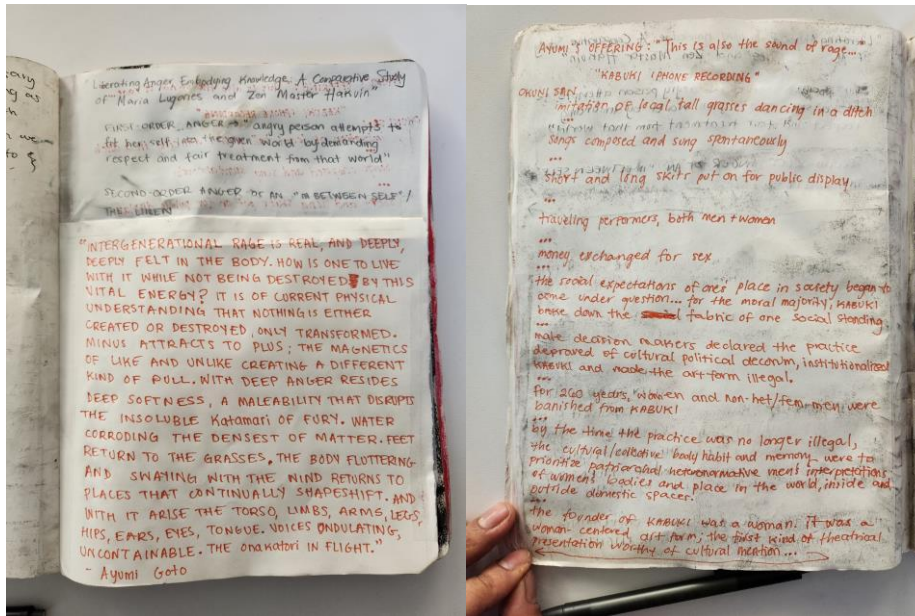 "Liberating Anger, Embodying Knowledge: A Comparative Study
of "Maria Lugones and Zen Master Hakuin"
FIRST-ORDER ANGER → "angry person attempts to
fit her self into the given world by demanding
respect and fair treatment from that world"
SECOND-ORDER ANGER OF AN "IN BETWEEN SELF"/
THE LIMEN
"INTERGENERATIONAL RAGE IS REAL, AND DEEPLY,
DEEPLY FELT IN THE BODY. HOW IS ONE TO LIVE
WITH IT WHILE NOT BEING DESTROYED BY THIS
VITAL ENERGY? IT IS OF CURRENT PHYSICAL
UNDERSTANDING THAT NOTHING IS EITHER
CREATED OR DESTROYED, ONLY TRANSFORMED.
MINUS ATTRACTS TO PLUS; THE MAGNETICS
OF LIKE AND UNLIKE CREATING A DIFFERENT
KIND OF PULL. WITH DEEP ANGER RESIDES
DEEP SOFTNESS, A MALEABILITY THAT DISRUPTS
THE INSOLUBLE Katamari OF FURY. WATER
CORRODING THE DENSEST OF MATTER. FEET
RETURN TO THE GRASSES. THE BODY FLUTTERING
AND SWAYING WITH THE WIND RETURNS TO
PLACES THAT CONTINUALLY SHAPESHIFT. AND
WITH IT ARISE THE TORSO, LIMBS, ARMS, LEGS,
HIPS, EARS, EYES, TONGUE. VOICES ONDULATING,
UNCONTAINABLE. THE onakatori IN FLIGHT."
- Ayumi Goto
AYUMI'S OFFERING: "This is also the sound of rage..."
"KABUKI IPHONE RECORDING"
OKUNI SAN
imitation of local tall grasses dancing in a ditch
...
songs composed and sung spontaneously
...
short and long skits put on for public display
...
traveling performers, both men + women
...
money exchanged for sex
...
the social expectations of one's place in society began to
come under question... for the moral majority, KABUKI
broke down the fabric of one social standing
...
male decision makers declared the practice
depraved of cultural political decorum, institutionalized
KABUKI and made the art form illegal.
...
for 260 years, women and non-het/fem-men were
banished from KABUKI
...
by the time the practice was no longer illegal,
the cultural/collective body habit and memory were to
prioritize patriarchal heteronormative men's interpretations
of women's bodies and place in the world, inside and
outside domestic spaces.
...
the founder of KABUKI was a woman. it was a
woman-centered art form; the first kind of theatrical
presentation worthy of cultural mention...